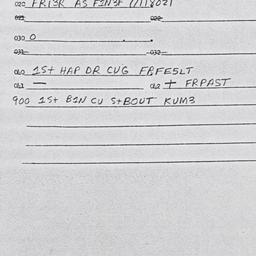 020 FRIJR AS FINSF 1/118021
021 022
030 0
031 032
060 1St HAP DR CUG FRFESLT
061 — 062 + FRPAST
900 1St B1N CU StBOUT KUM3